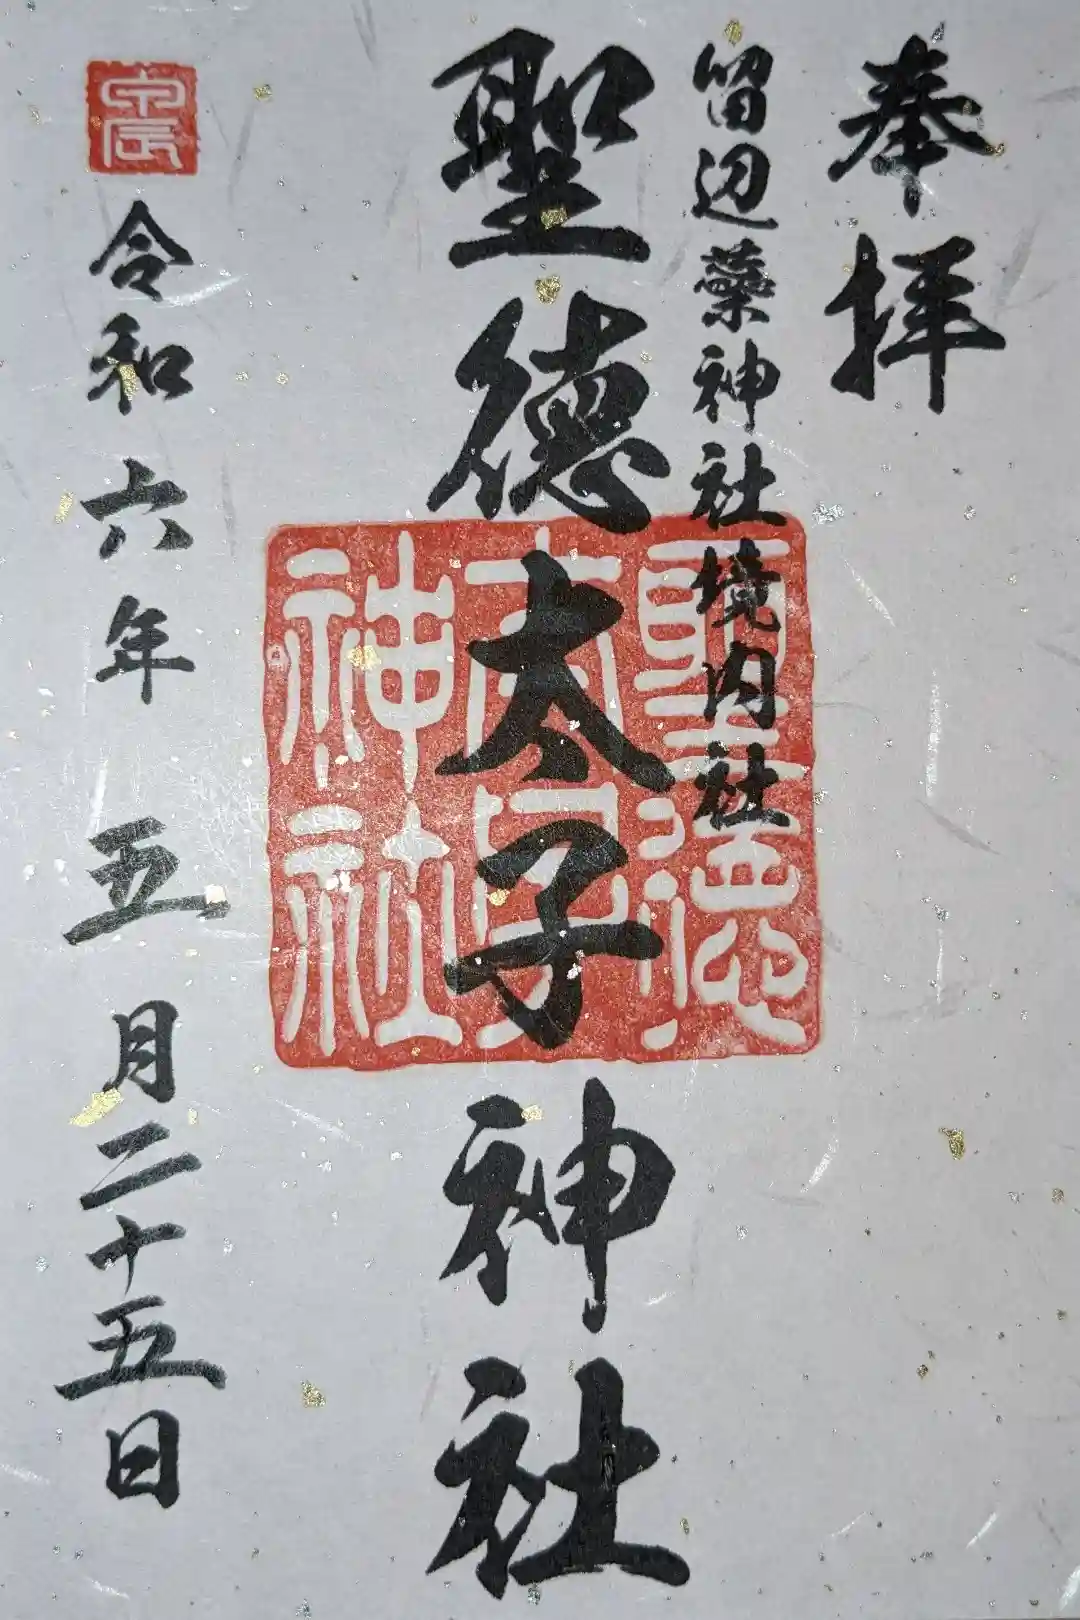 奉拝
留辺蘂神社境内社
聖徳太子神社
聖徳
太子
神社
甲辰
令和六年五月二十五日